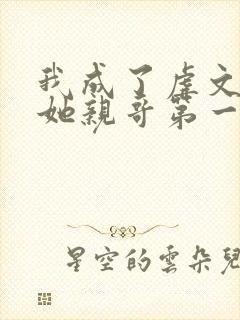 我成了虐文
她親哥第一
星空的雲朵兒